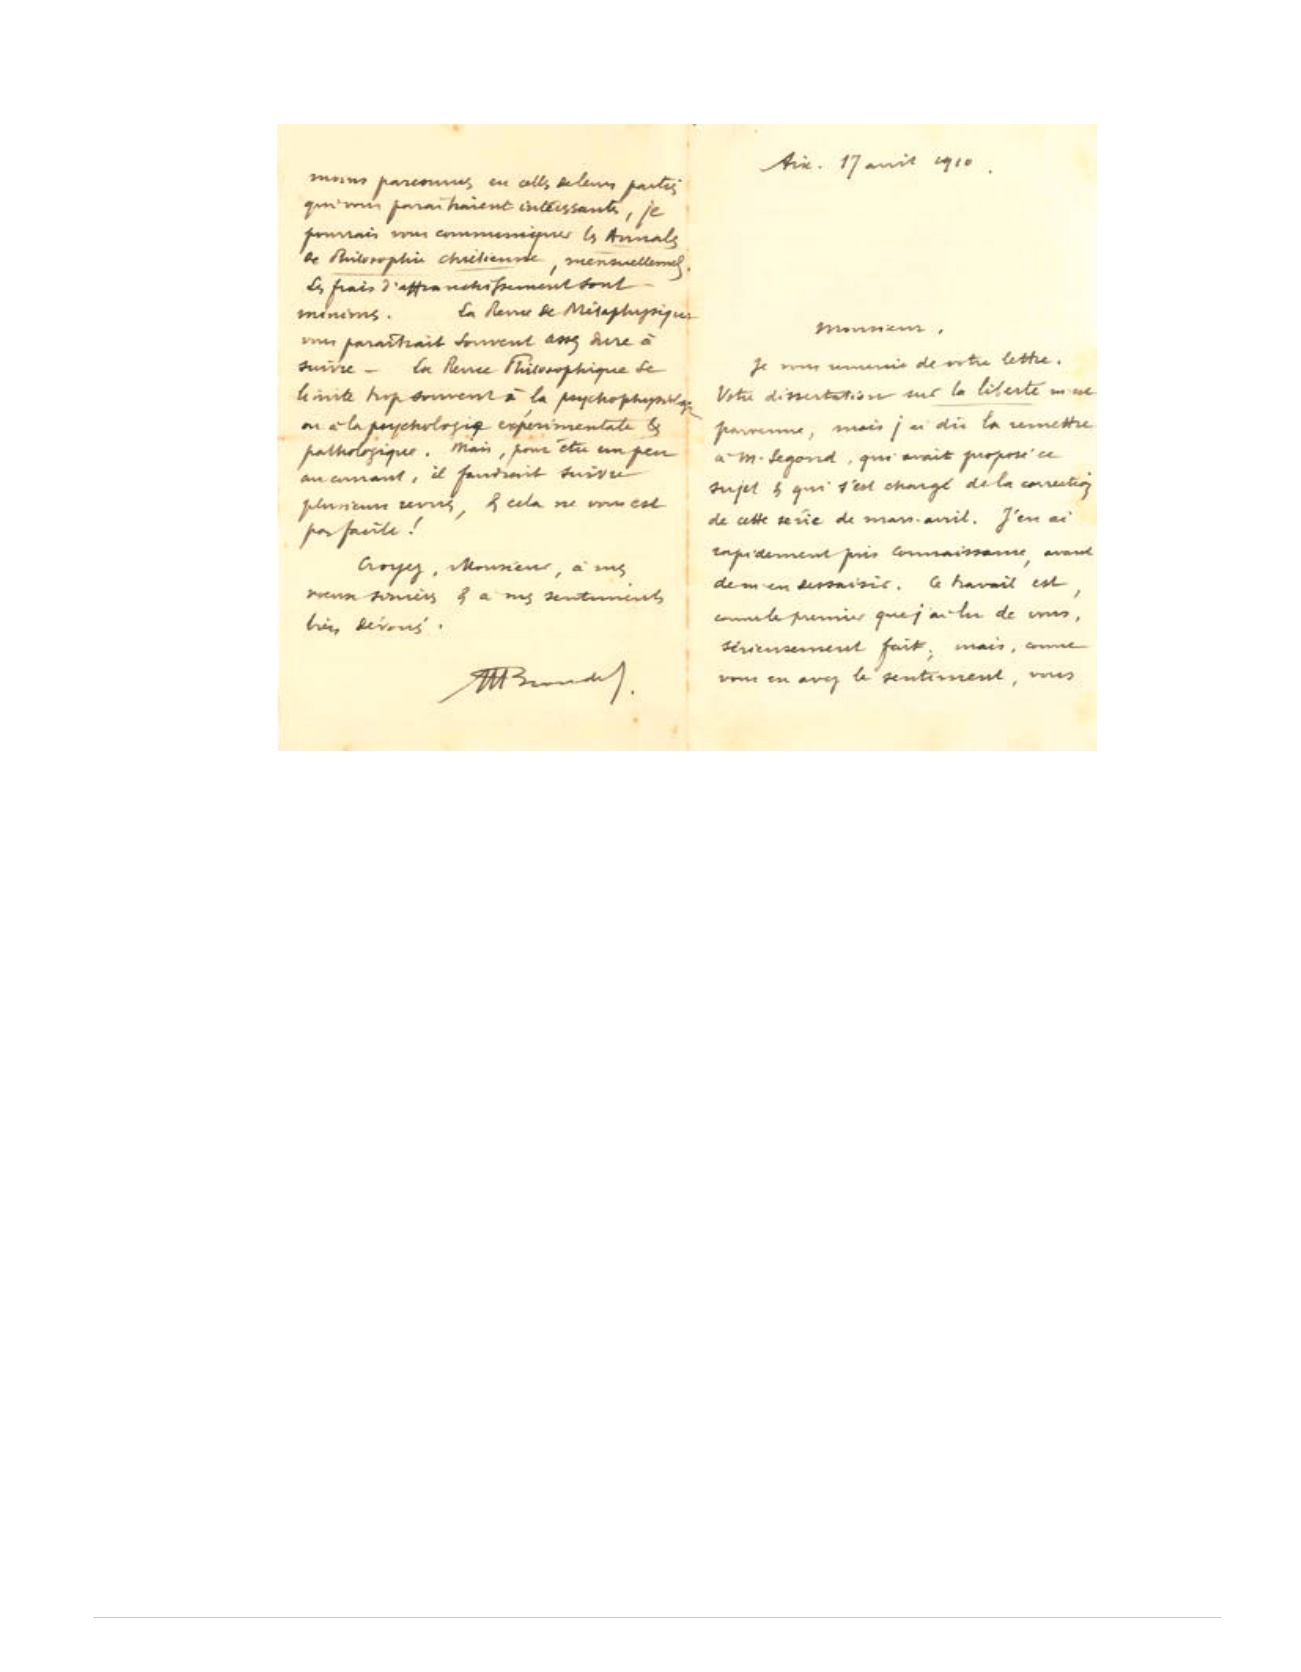 Aix. 17 avril 1910.
Monsieur,
Je vous remercie de votre lettre.
Votre dissertation sur la liberté m'est
parvenue, mais j'ai dû la remettre
à M. Segond, qui avait proposé ce
sujet & qui s'est chargé de la correction
de cette série de mars-avril. J'en ai
rapidement pris connaissance, avant
de m'en dessaisir. Ce travail est,
comme le premier que j'ai lu de vous,
sérieusement fait; mais, comme
vous en avez le sentiment, vous
moins parcourues en celles de leurs parties
qui vous paraîtraient intéressantes, je
pourrais vous communiquer les Annales
de Philosophie chrétienne, mensuellement.
Les frais d'affranchissement sont
minimes. La Revue de Métaphysique
vous paraîtrait souvent assez dure à
suivre – La Revue Philosophique se
limite trop souvent à la psychophysiologie
ou à la psychologie expérimentale &
pathologique. Mais, pour être un peu
au courant, il faudrait suivre
plusieurs revues, & cela ne vous est
pas facile!
Croyez, Monsieur, à mes
vœux sincères & à mes sentiments
bien dévoués.
MBlondel.